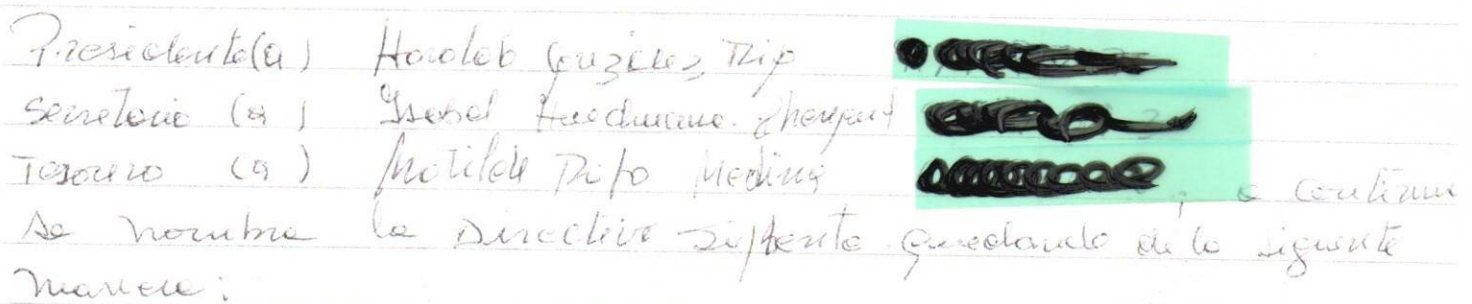 Presidente(a) Haroldo González Tripa
Secretario (a) Isabel Huechucura
Tesorero (a) Matilde Medina , a continua
se nombra la Directiva Suplente quedando de la siguiente
manera: